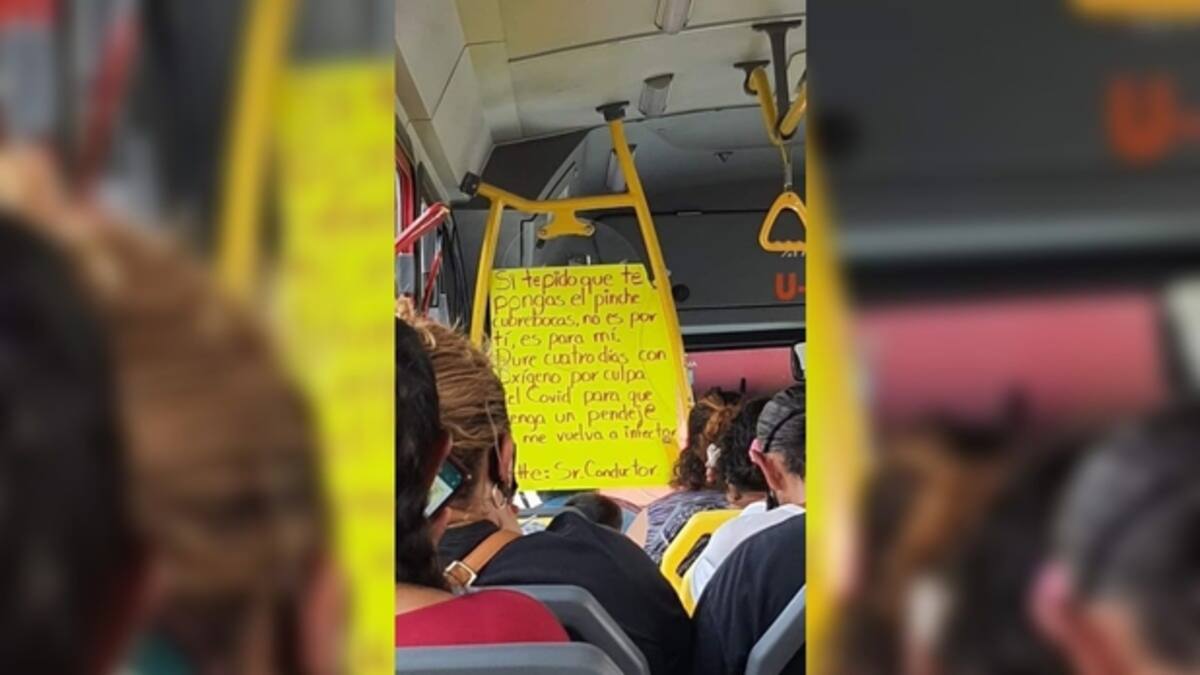 Si te pido que te
pongas el pinche
cubrebocas, no es por
tí, es para mí.
Dure cuatro días con
oxígeno por culpa
del Covid para que
venga un pendeje
me vuelva a infectar
Atte: Sr. Conductor
U-
U-